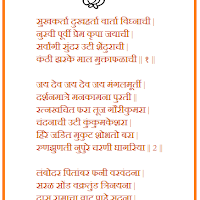 सुखकर्ता दुखहर्ता वार्ता विघ्नाची |
नुरवी पूर्वी प्रेम कृपा जयाची |
सर्वांगी सुंदर उटी शेंदुराची |
कंठी झरके माळ मुक्ताफळांची || १ ||
जय देव जय देव जय मंगलमूर्ती |
दर्शनमात्रे मनकामना पुरती ||
रत्नखचित फरा तूज गौरीकुमरा |
चंदनाची उटी कुंकुमकेशरा |
हिरे जडित मुकुट शोभतो बरा |
रुणझुणती नुपुरे चरणी घागरिया || 2 ||
लंबोदर पितांबर फनी वरवंदना |
सरळ सोंड वक्रतुंड त्रिनयना |
दास रामाचा वाट पाहे सदना |